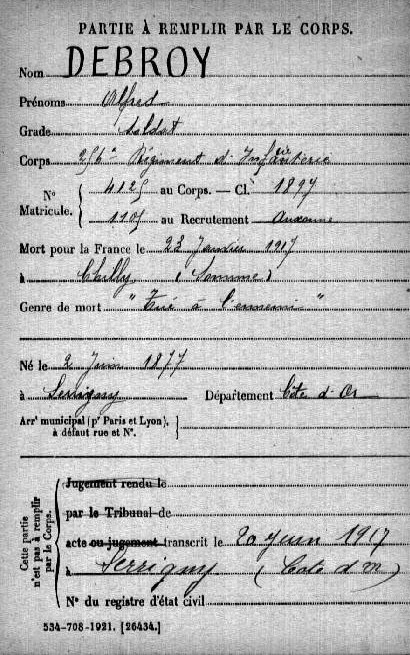 PARTIE À REMPLIR PAR LE CORPS.
Nom DEBROY
Prénoms Alfred
Grade soldat
Corps 256e Régiment d'Infanterie
N° Matricule. { 4125 au Corps. — Cl. 1897
1105 au Recrutement Auxonne
Mort pour la France le 23 Janvier 1917
à Chilly (Somme)
Genre de mort "Tué à l'ennemi"
Né le 2 Juin 1877
à Serrigny Département Côte d'Or
Arrt municipal (pr Paris et Lyon), à défaut rue et N°. }
Cette partie n'est pas à remplir par le Corps. {
Jugement rendu le
par le Tribunal de
acte ou jugement transcrit le 20 Juin 1917
à Serrigny (Cote d'or)
N° du registre d'état civil
534-708-1921. [26434.]